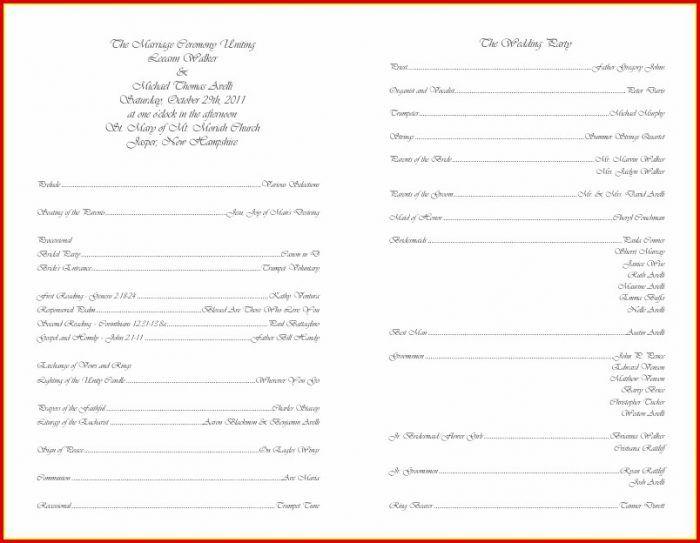 The Marriage Ceremony Uniting
Leeann Walker
&
Michael Thomas Avelli
Saturday, October 29th, 2011
at one o'clock in the afternoon
St. Mary of Mt. Moriah Church
Jasper, New Hampshire
Prelude Various Selections
Seating of the Parents Jesu, Joy of Man's Desiring
Processional
Bridal Party Canon in D
Bride's Entrance Trumpet Voluntary
First Reading - Genesis 2:18-24 Kathy Ventura
Responsorial Psalm Blessed Are Those Who Love You
Second Reading - Corinthians 12:31-13:8a Paul Battaglino
Gospel and Homily - John 2:1-11 Father Bill Handy
Exchange of Vows and Rings
Lighting of the Unity Candle Wherever You Go
Prayers of the Faithful Charles Stacey
Liturgy of the Eucharist Aaron Blackmon & Benjamin Avelli
Sign of Peace On Eagles Wings
Communion Ave Maria
Recessional Trumpet Tune
The Wedding Party
Priest Father Gregory Johns
Organist and Vocalist Peter Davis
Trumpeter Michael Murphy
Strings Summer Strings Quartet
Parents of the Bride Mr. Marvin Walker
Mrs. Jaclyn Walker
Parents of the Groom Mr. & Mrs. David Avelli
Maid of Honor Cheryl Couchman
Bridesmaids Paula Conner
Sherri Murray
Janice Wise
Ruth Avelli
Maurine Avelli
Emma Balfa
Nelle Avelli
Best Man Austin Avelli
Groomsmen John P. Pence
Edward Venson
Matthew Venson
Barry Brice
Christopher Tucker
Weston Avelli
Jr. Bridesmaid/Flower Girls Breanna Walker
Cristiana Ratliff
Jr. Groomsmen Ryan Ratliff
Josh Avelli
Ring Bearer Tanner Durett